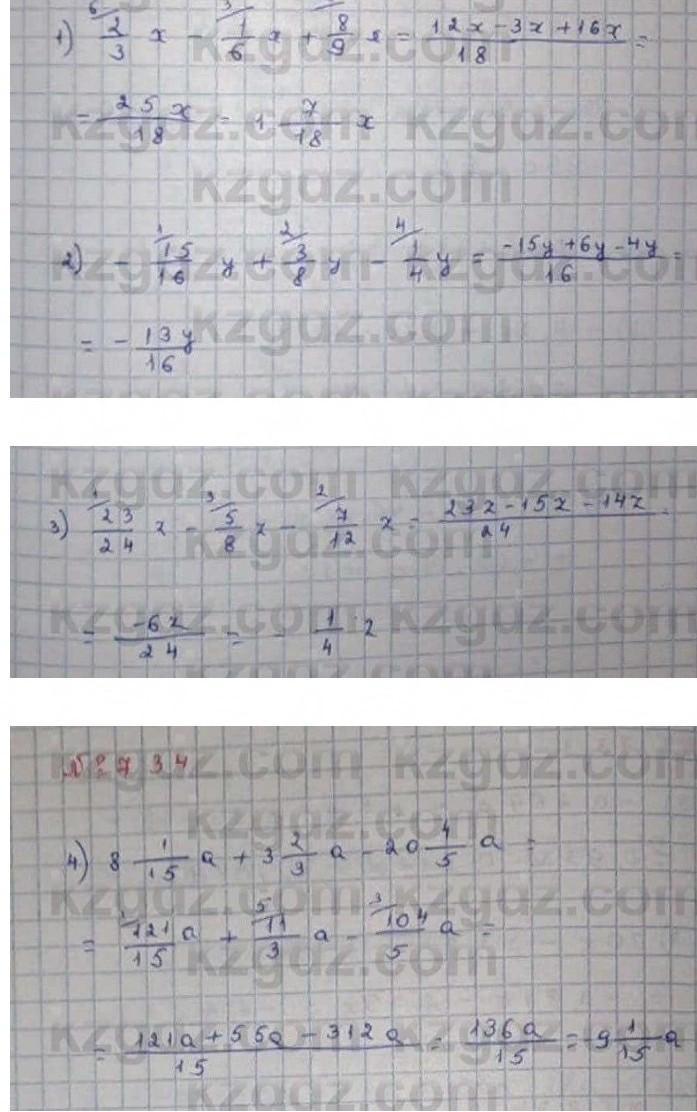 1) 6/ 2/3 x - 3/ 1/6 x + 8/9 x = 12x-3x+16x/18 =
= 25x/18 = 1 7/18 x
2) - 1/ 15/16 y + 2/ 3/8 y - 4/ 1/4 y = -15y+6y-4y/16 =
= - 13y/16
3) 1/ 23/24 z - 3/ 5/8 z - 2/ 7/12 z = 23z-15z-14z/24 =
= -6z/24 = - 1/4 z
№734
4) 8 1/15 a + 3 2/3 a - 20 4/5 a =
= 1/ 121/15 a + 5/ 11/3 a - 3/ 104/5 a =
= 121a+55a-312a/15 = 136a/15 = 9 1/15 a
kzgdz.com